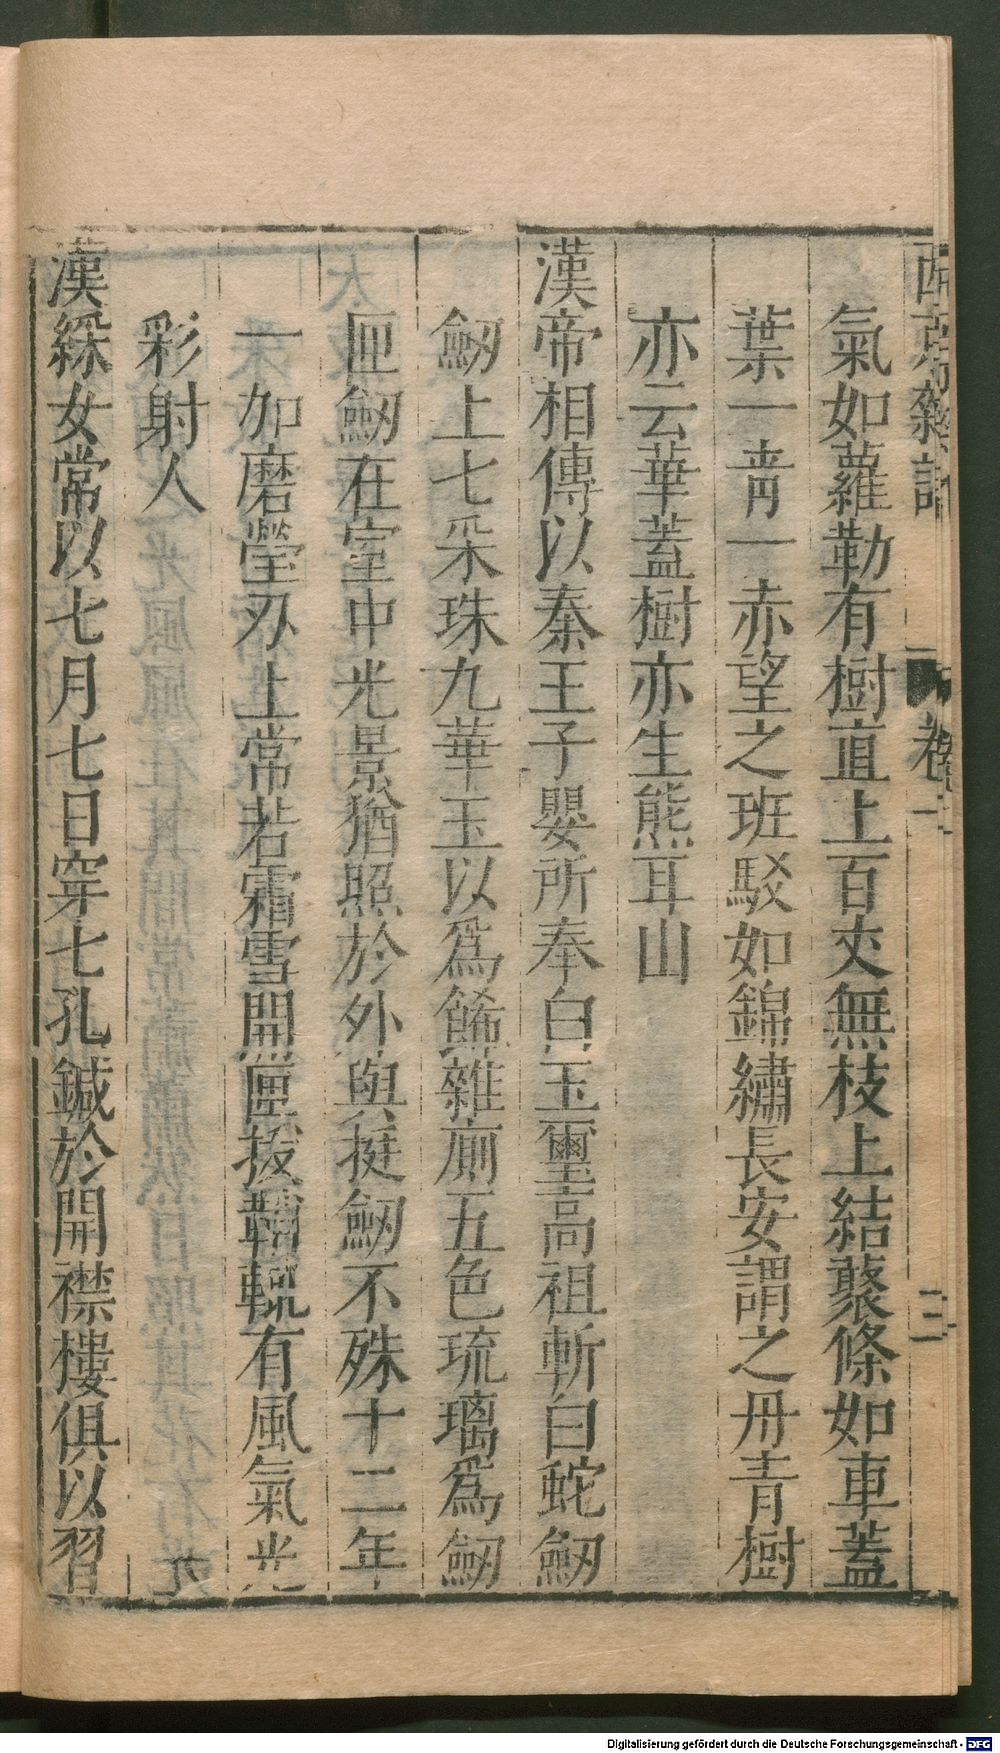 西京雜記
卷一
三
氣如蘿勒有樹直上百丈無枝上結藂條如車蓋
葉一靑一赤望之班駁如錦繡長安謂之丹青樹
亦云華蓋樹亦生熊耳山
漢帝相傳以秦王子嬰所奉白玉璽高祖斬白蛇劒
劒上七采珠九華玉以爲餙雜廁五色琉璃爲劒
匣劒在室中光景猶照於外與挺劒不殊十二年
一加磨瑩刃上常若霜雪開匣拔鞘輒有風氣光
彩射人
漢綵女常以七月七日穿七孔鍼於開襟樓俱以習
Digitalisierung gefördert durch die Deutsche Forschungsgemeinschaft - DFG